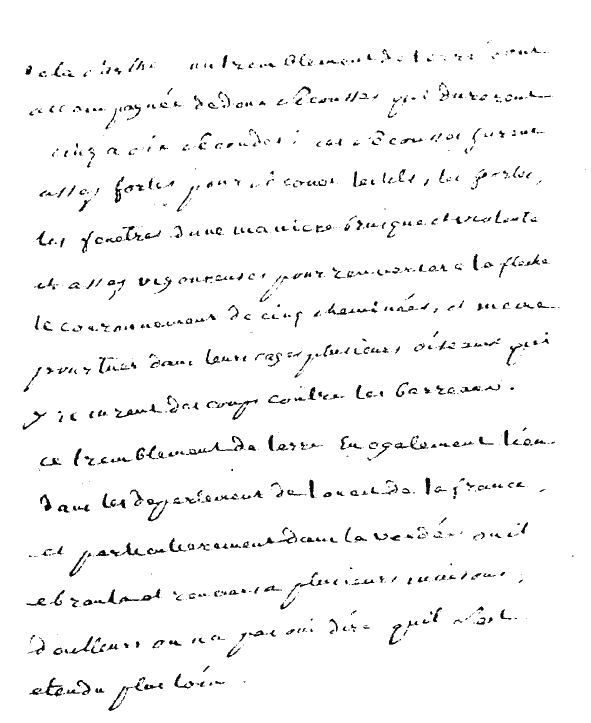 de la sarthe un tremblement de terre
accompagnée de deux secousses qui durerent
cinq a six secondes ; ces secousses furent
assez fortes pour secouer les lits, les portes,
les fenêtres d'une maniere brusque et violente
et assez vigoureuses pour renverser a la fleche
le couronnement de cinq cheminées, et meme
pour tuer dans leurs cages plusieurs oiseaux qui
y recurent des coups contre les barreaux.
ce tremblement de terre eu egalement lieu
dans les departement de l'ouest de la france,
et particulierement dans la vendée ou il
ebranla et renversa plusieurs maisons,
d'ailleurs on na pas oui dire quil s'est
etendu plus loin.